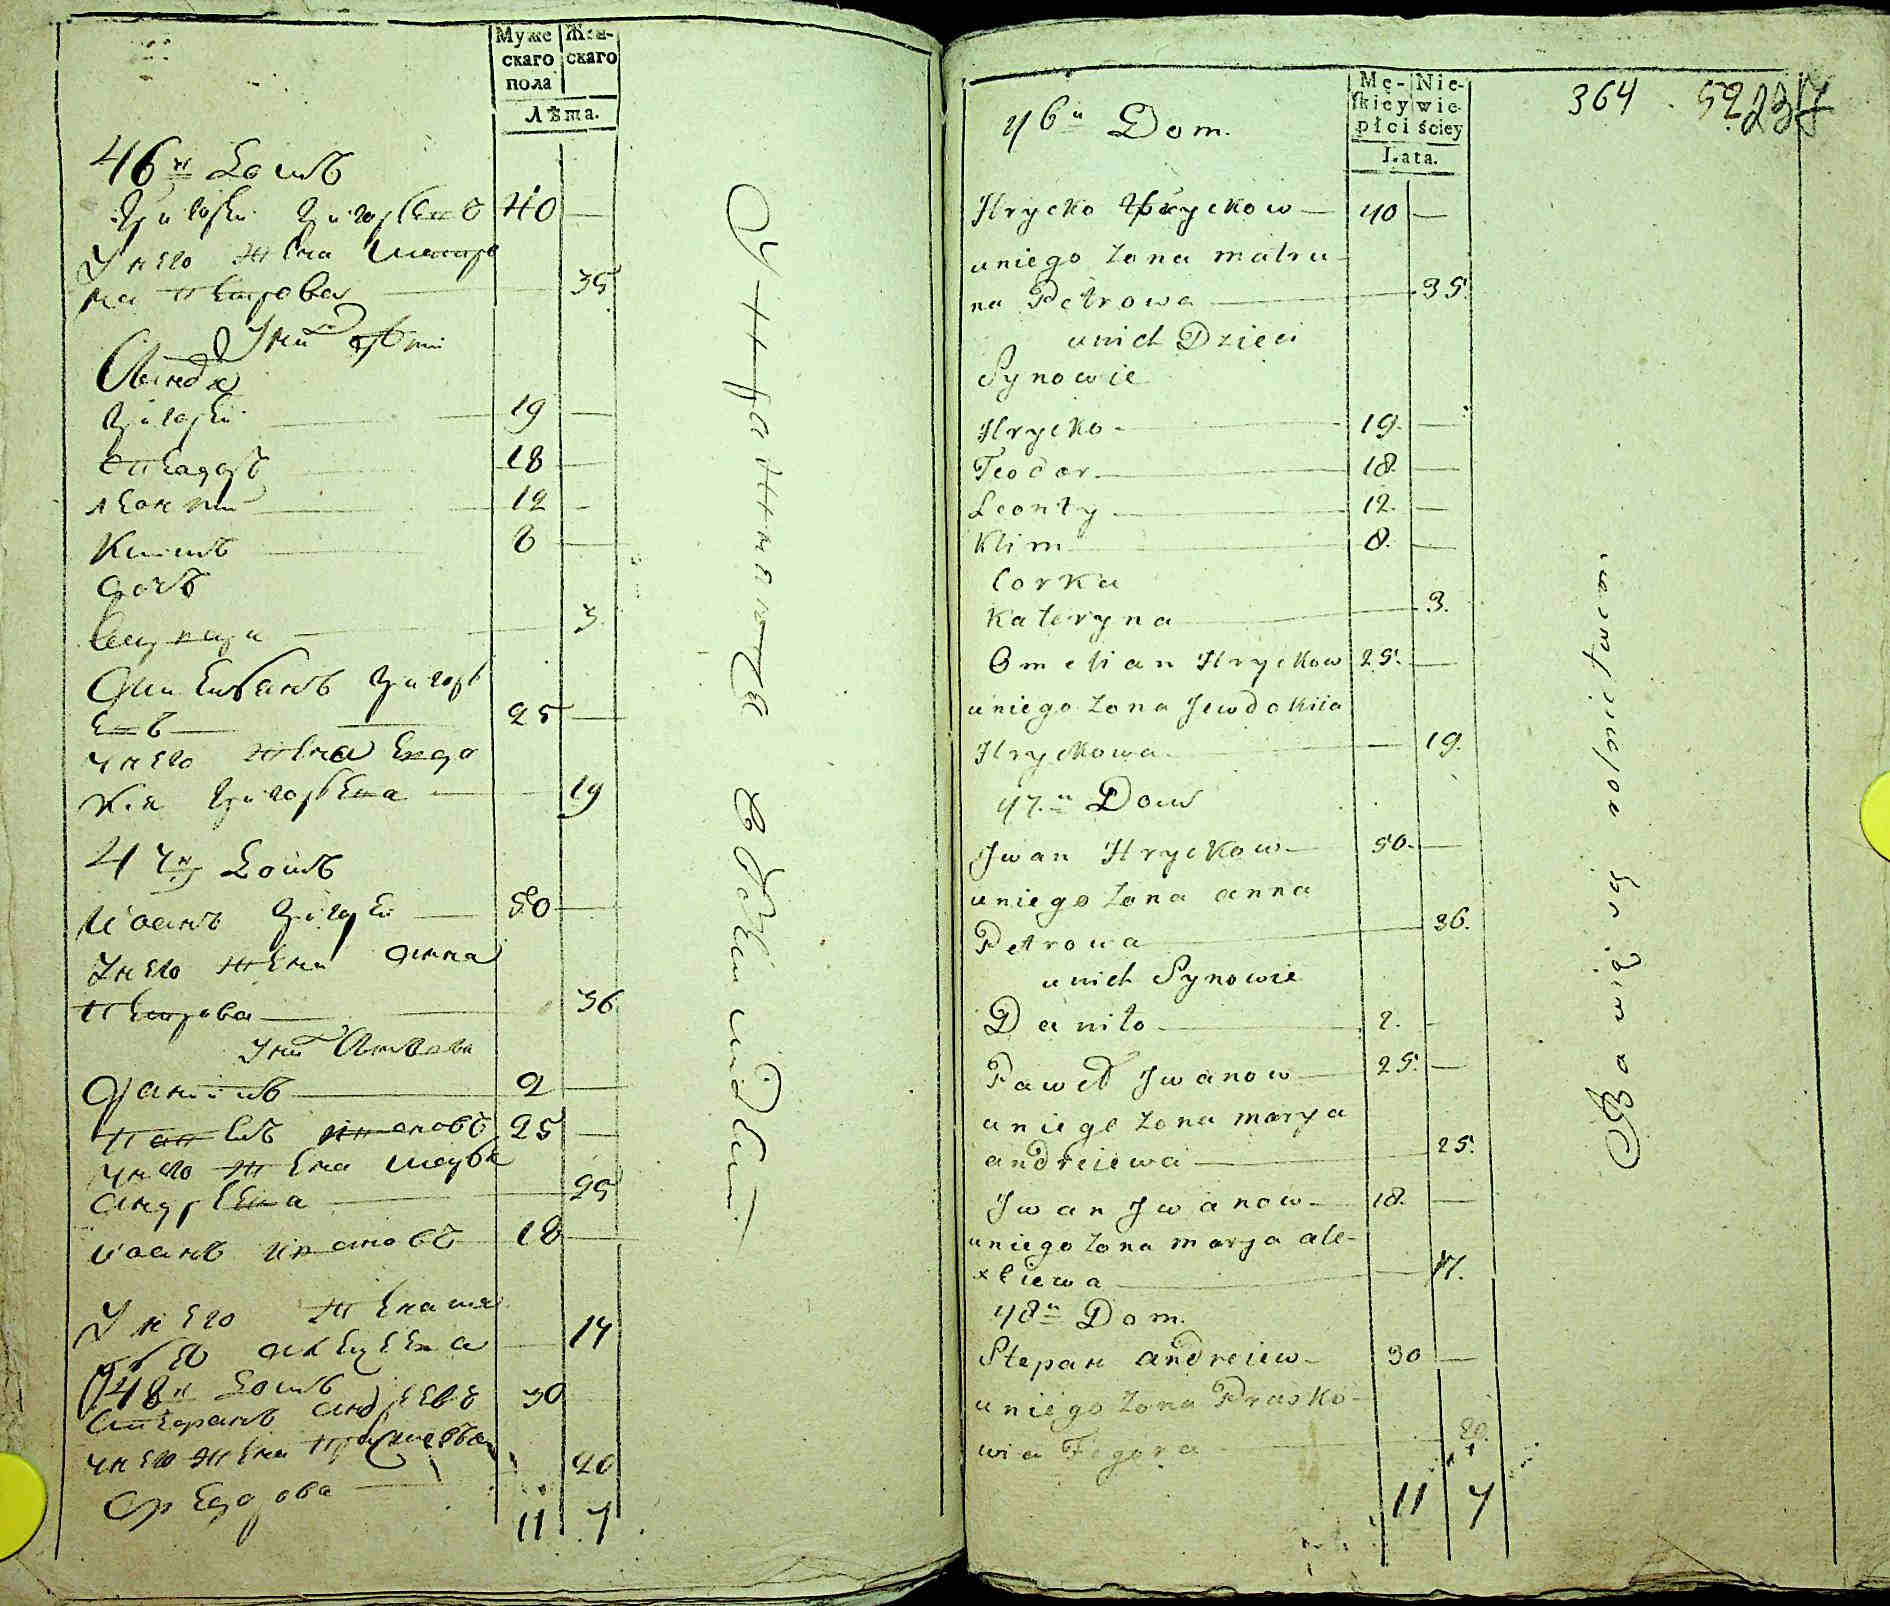 Муже
скаго
пола
Жен-
скаго
Лѣта.
46й Домъ
Григорей Григорьевъ 40 —
У него жена Матро
на Петрова — 35
У нихъ дѣти
Сыновья
Григорей — 19 —
Феодоръ — 18 —
Леонтий — 12 —
Климъ — 8 —
Дочь
— 3
Омельянъ Григорь
евъ — 25 —
у него жена Евдо
кия Григорьева — 19
47й Домъ
Иоанъ — 50 —
У него жена Анна
Петрова — 36
У нихъ Сыновья
Данилъ — 2 —
Павелъ Ивановъ 25 —
У него жена Марья
Андреева — 25
Иоанъ Ивановъ 18 —
У него жена Ма
рья Алексеева — 17
48й Домъ
Степанъ Андреевъ 30
у него жена Прасковья
Федорова — 20
11 7
Упражняются в
46й Dom.
Mę-
skiey
płci
Nie-
wie-
ściey
Lata.
364 . 59 237
Hrycko Hryckow — 40 —
uniego Zona matru-
na Petrowa — 35.
unich Dzieci
Synowie
Hrycko — 19. —
Teodor — 18. —
Leonty — 12. —
Klim — 8. —
Corka
Kateryna — 3.
Omelian Hryckow 25. —
uniego Zona Jewdokiia
Hryckowa — 19.
47.й Dom
Jwan Hryckow — 50. —
uniego Zona anna
Petrowa — 36.
unich Synowie
Daniło — 2. —
Paweł Jwanow — 25. —
uniego Zona marya
andreiewa — 25.
Jwan Jwanow — 18. —
uniego Zona marya ale-
xiewa — 17.
48й Dom.
Stepan andreiew — 30 —
uniego Zona Prasko-
wia — 20.
11 7
Bawią się rolnictwem.